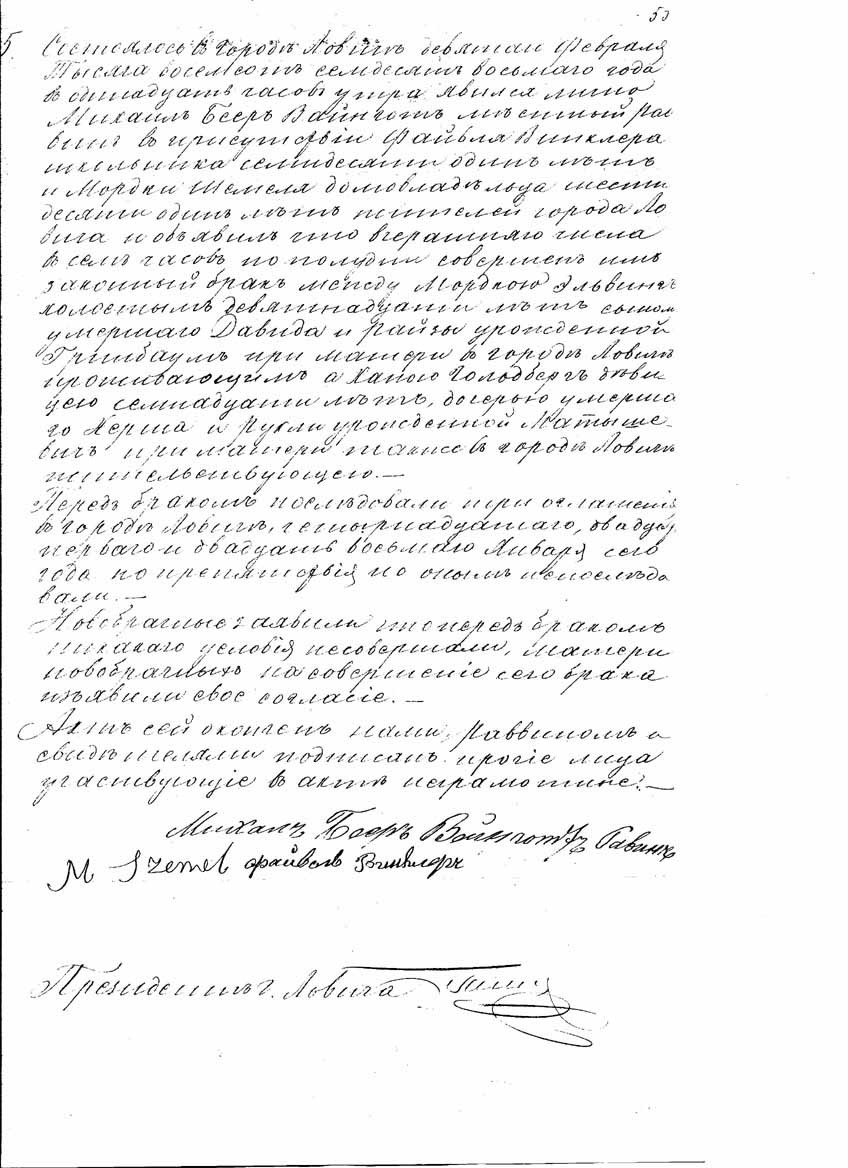 53
5. Состоялось въ городѣ Ловичѣ девятаго Февраля
Тысяча восемсотъ семдесятъ восьмаго года
въ одинадцать часовъ утра явился лично
Михаилъ Бееръ Вайнготъ мѣстный Рав
винъ въ присутствіи Файвля Винклера
школьника семидесяти одинъ лѣтъ
и Мордки Шемеля домовладѣльца шести
десяти одинъ лѣтъ жителей города Ло
вича и объявилъ что вчерашняго числа
въ семъ часовъ по полудни совершенъ имъ
законный бракъ между Мордкою Эльвингъ
холостымъ девятнадцати лѣтъ сыномъ
умершаго Давида и Райзы урожденной
Гринбаумъ при матери въ городѣ Ловичѣ
проживающимъ а Ханою Голодбергъ дѣви
цею семнадцати лѣтъ, дочерью умерша
го Херша и Рухли урожденной Матыше-
вичъ при матери также въ городѣ Ловичѣ
жительствующею. —
Передъ бракомъ послѣдовали три оглашенія
въ городѣ Ловичѣ, четырнадцатаго, двадцать
перваго и двадцать восьмаго Января сего
года но препятствія по онымъ непослѣдо
вали. —
Новобрачные заявили что передъ бракомъ
никакаго условія несовершали, матери
новобрачныхъ на совершеніе сего брака
изъявили свое согласіе. —
Актъ сей оконченъ нами, Раввиномъ и
свидѣтелями подписанъ прочіе лица
участвующіе въ актѣ неграмотные. —
Михалъ Бееръ Вайнготъ Равинъ
M Szemel файволь Винклеръ
Президентъ г. Ловича